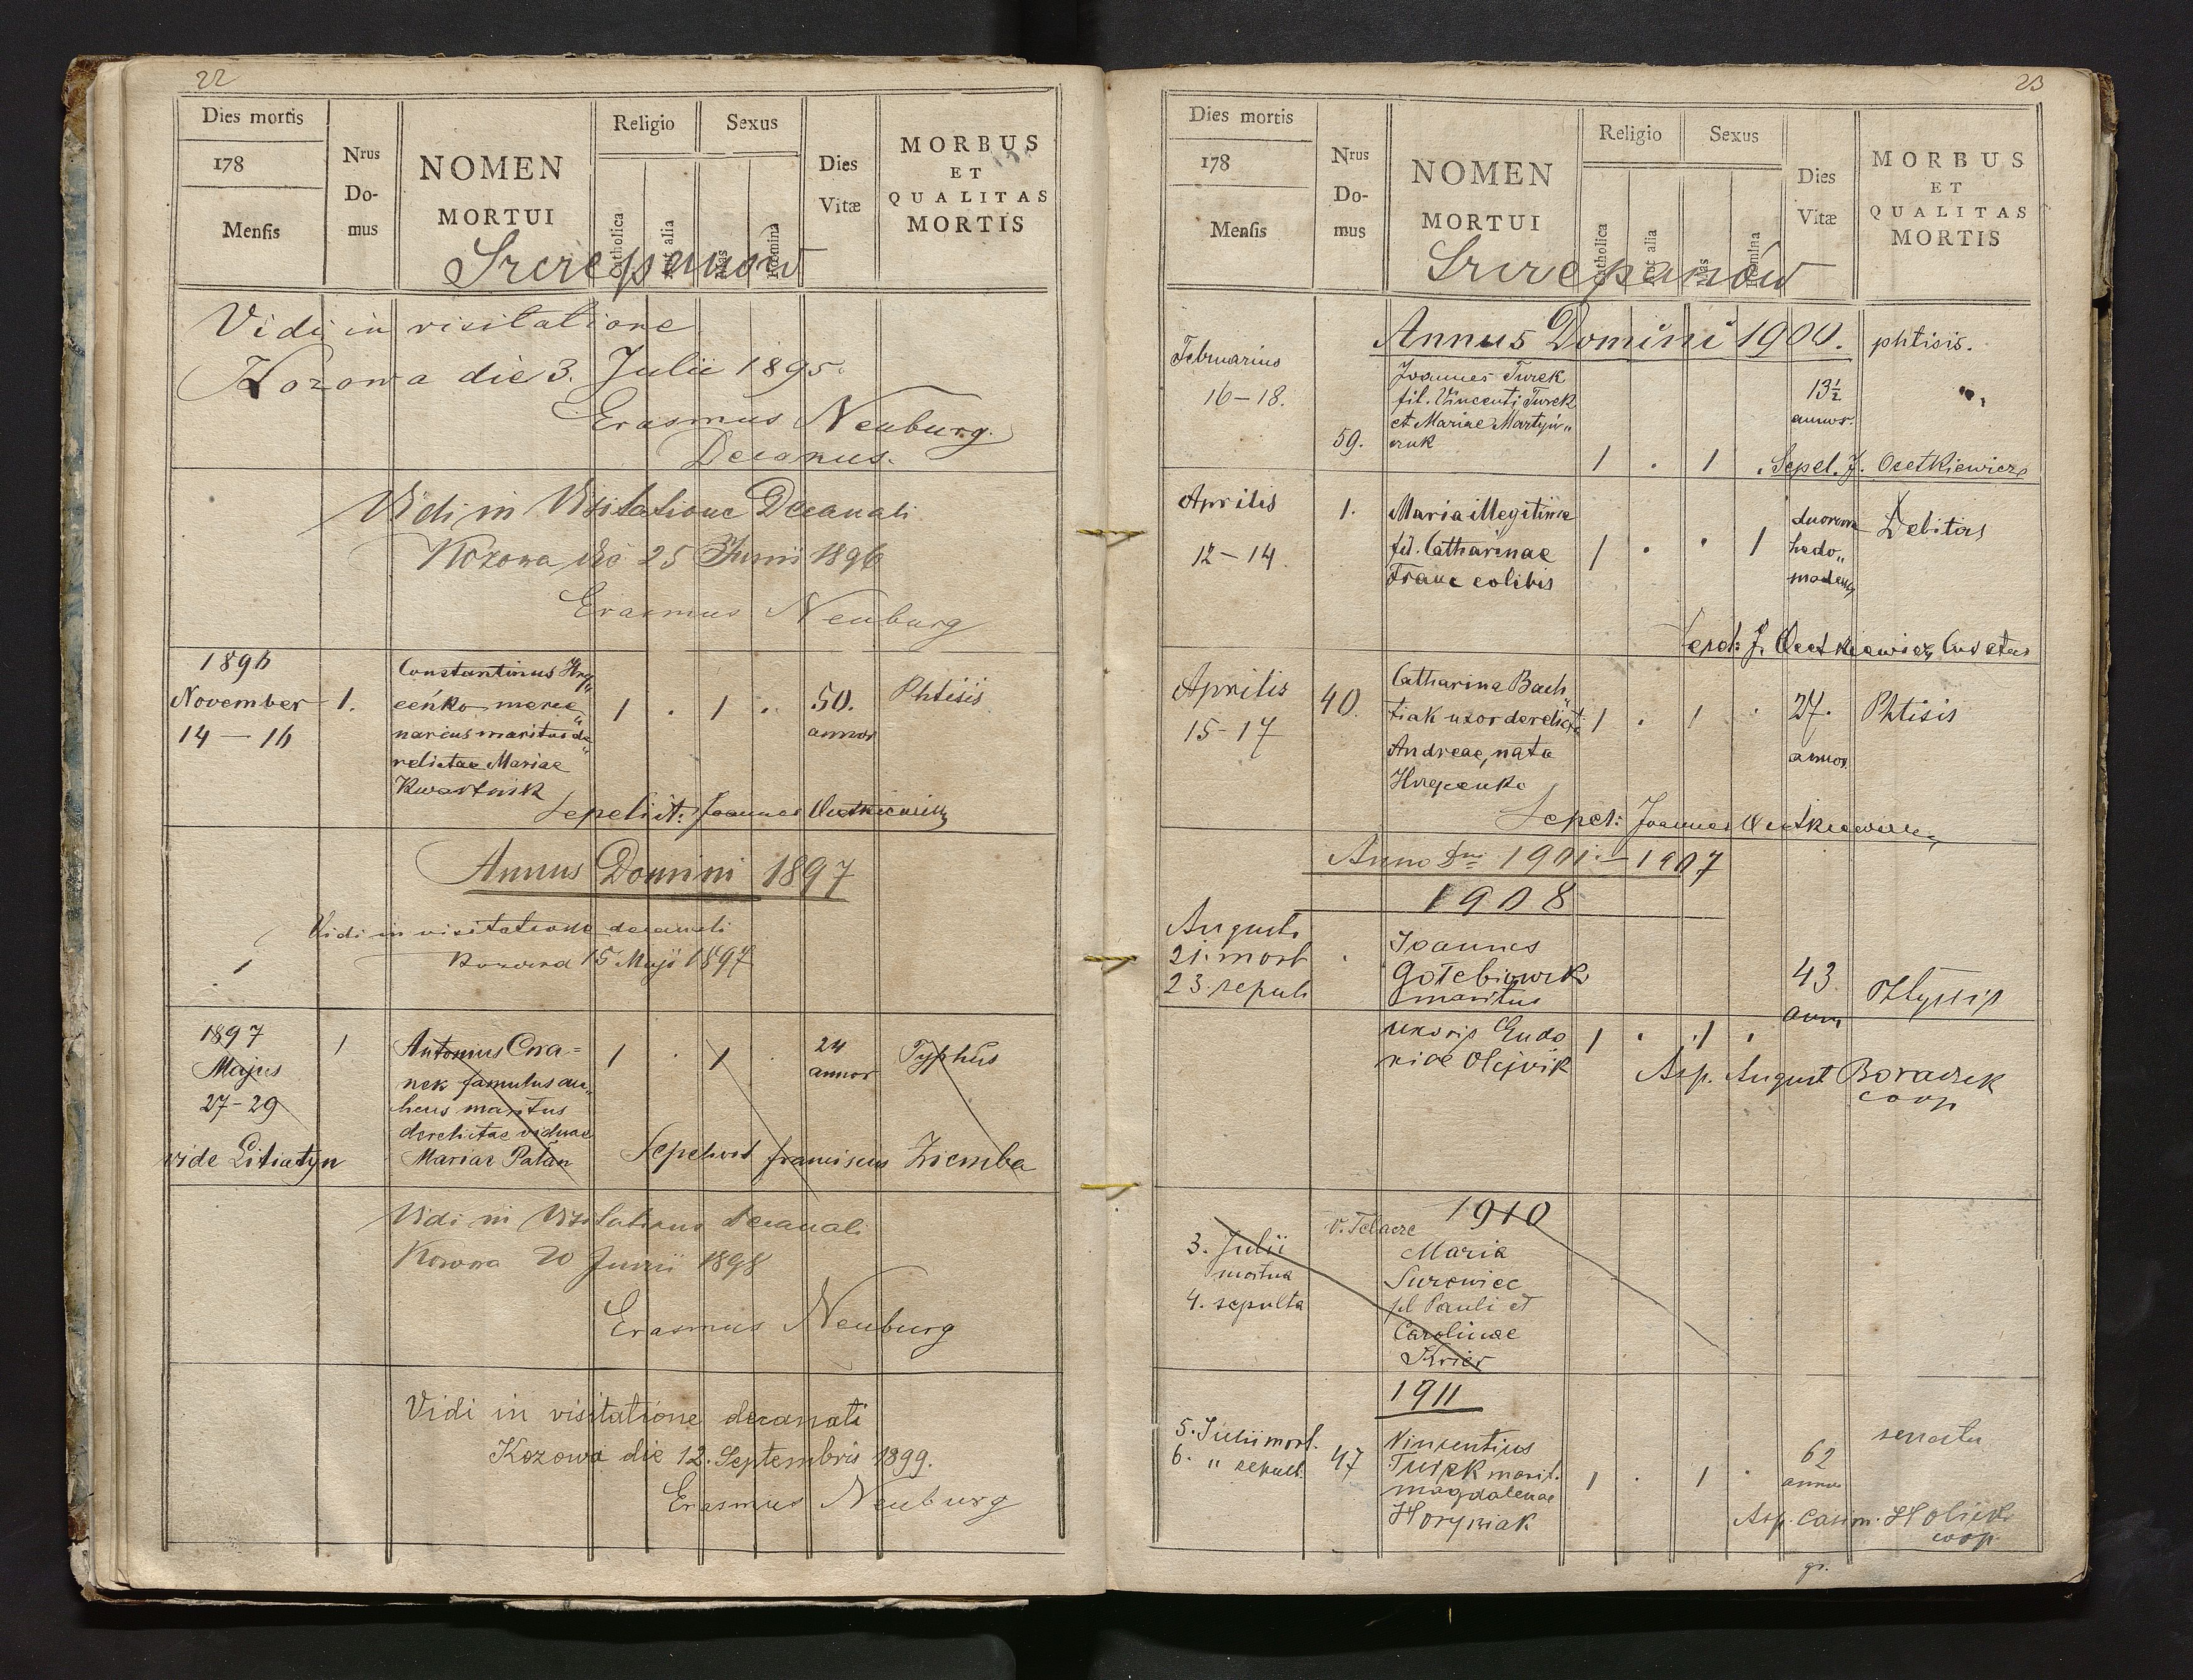 22
Dies mortis
178
Mensis
Nrus
Do-
mus
NOMEN
MORTUI
Religio
Catholica
Aut alia
Sexus
Mas
Fœmina
Dies
Vitæ
MORBUS
ET
QUALITAS
MORTIS
Szczepanow
Vidi in visitatione
Kozowa die 3. Julii 1895.
Erasmus Neuburg.
Decanus.
Vidi in Visitatione Decanali
Kozowa die 25 Junii 1896
Erasmus Neuburg
1896
November
14 — 16
1.
Constantinus Hry„
ceńko merce„
narius maritus de„
relictae Mariae
Kwartnik
1 . 1 .
50.
annor
Phtisis
Sepeliit: Joannes Ocetkiewicz
Annus Domini 1897
Vidi in visitatione decanali
Kozowa 15 Maji 1897
1897
Majus
27-29
vide Litiatyn
1
Antonius Cwa=
nek famulus au„
licus maritus
derelictae viduae
Mariae Patan
1 . 1 .
24
annor
Typhus
Sepelivit Franciscus Ziemba
Vidi in Visitatione decanali
Kozowa 20 Junii 1898
Erasmus Neuburg
Vidi in visitatione decanali
Kozowa die 12. Septembris 1899.
Erasmus Neuburg
23
Dies mortis
178
Mensis
Nrus
Do-
mus
NOMEN
MORTUI
Religio
Catholica
Aut alia
Sexus
Mas
Fœmina
Dies
Vitæ
MORBUS
ET
QUALITAS
MORTIS
Szczepanów
Annus Domini 1900.
Februarius
16—18.
59.
Joannes Turek
fil. Vincenti Turek
et Mariae Martyń„
czuk
1 . 1 .
13½
annor.
phtisis.
Sepel. J. Ocetkiewicz
Aprilis
12—14
1.
Maria illegitima
fil. Catharinae
Franc celibis
1 . . 1
duorum
hedo„
madum
Debitas
Sepel: J. Ocetkiewicz
Aprilis
15-17
40.
Catharina Bach„
tiak uxor derelicta
Andreae, nata
Hrycenko
1 . 1 .
27.
annor.
Phtisis
Sepel: Joannes Ocetkiewicz
Anno Dni 1901 — 1907
1908
Augusti
21. mort
23. sepult
Joannes
Gołębiowsk
maritus
uxoris Eudo
xiae Olejnik
1 . 1 .
43
Asp. August Boraczek
coop
1910
3. Julii
mortua
4. sepulta
Maria
Surowiec
fil Pauli et
Carolinae
Krier
1911
5. Julii mort.
6. " sepult.
47
Vincentius
Turek marit.
magdalenae
Horyniak
1 . 1 .
62
annor
senectu
Asp. Casim.
coop.
gr.